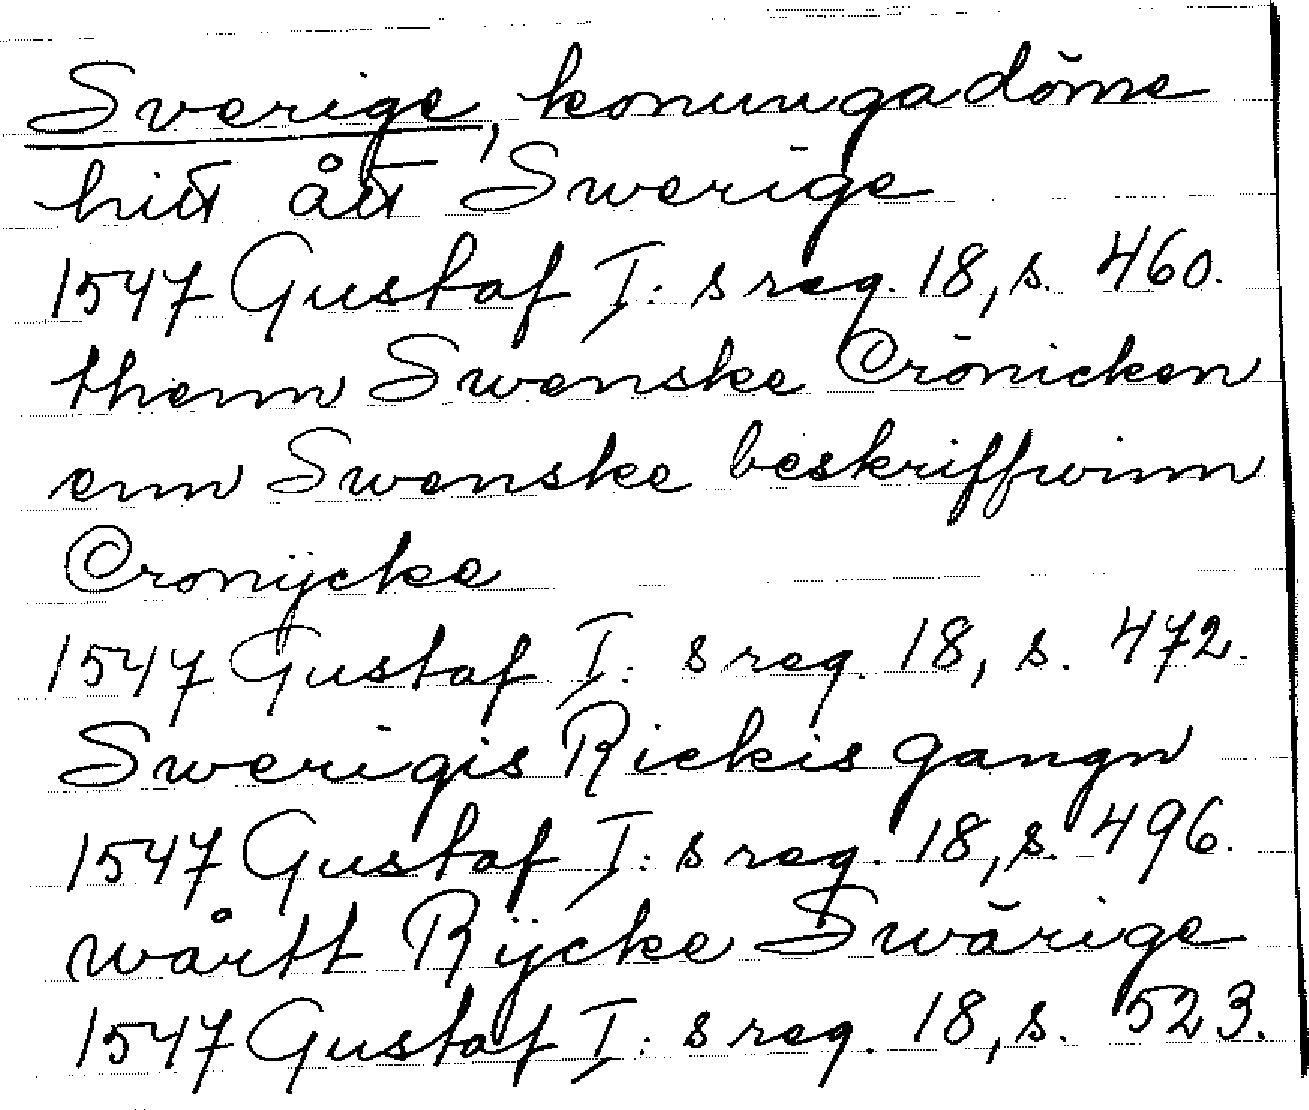 Sverige, konungadöme
hitt ått Swerige
1547 Gustaf I: s reg. 18, s. 460.
thenn Swenske Crönicken
enn Swenske beskriffwinn
Cronÿcke
1547 Gustaf I: s reg. 18, s. 472.
Swerigis Rickis gangn
1547 Gustaf I: s reg. 18, s. 496.
wårtt Rÿcke Swärige
1547 Gustaf I: s reg. 18, s. 523.